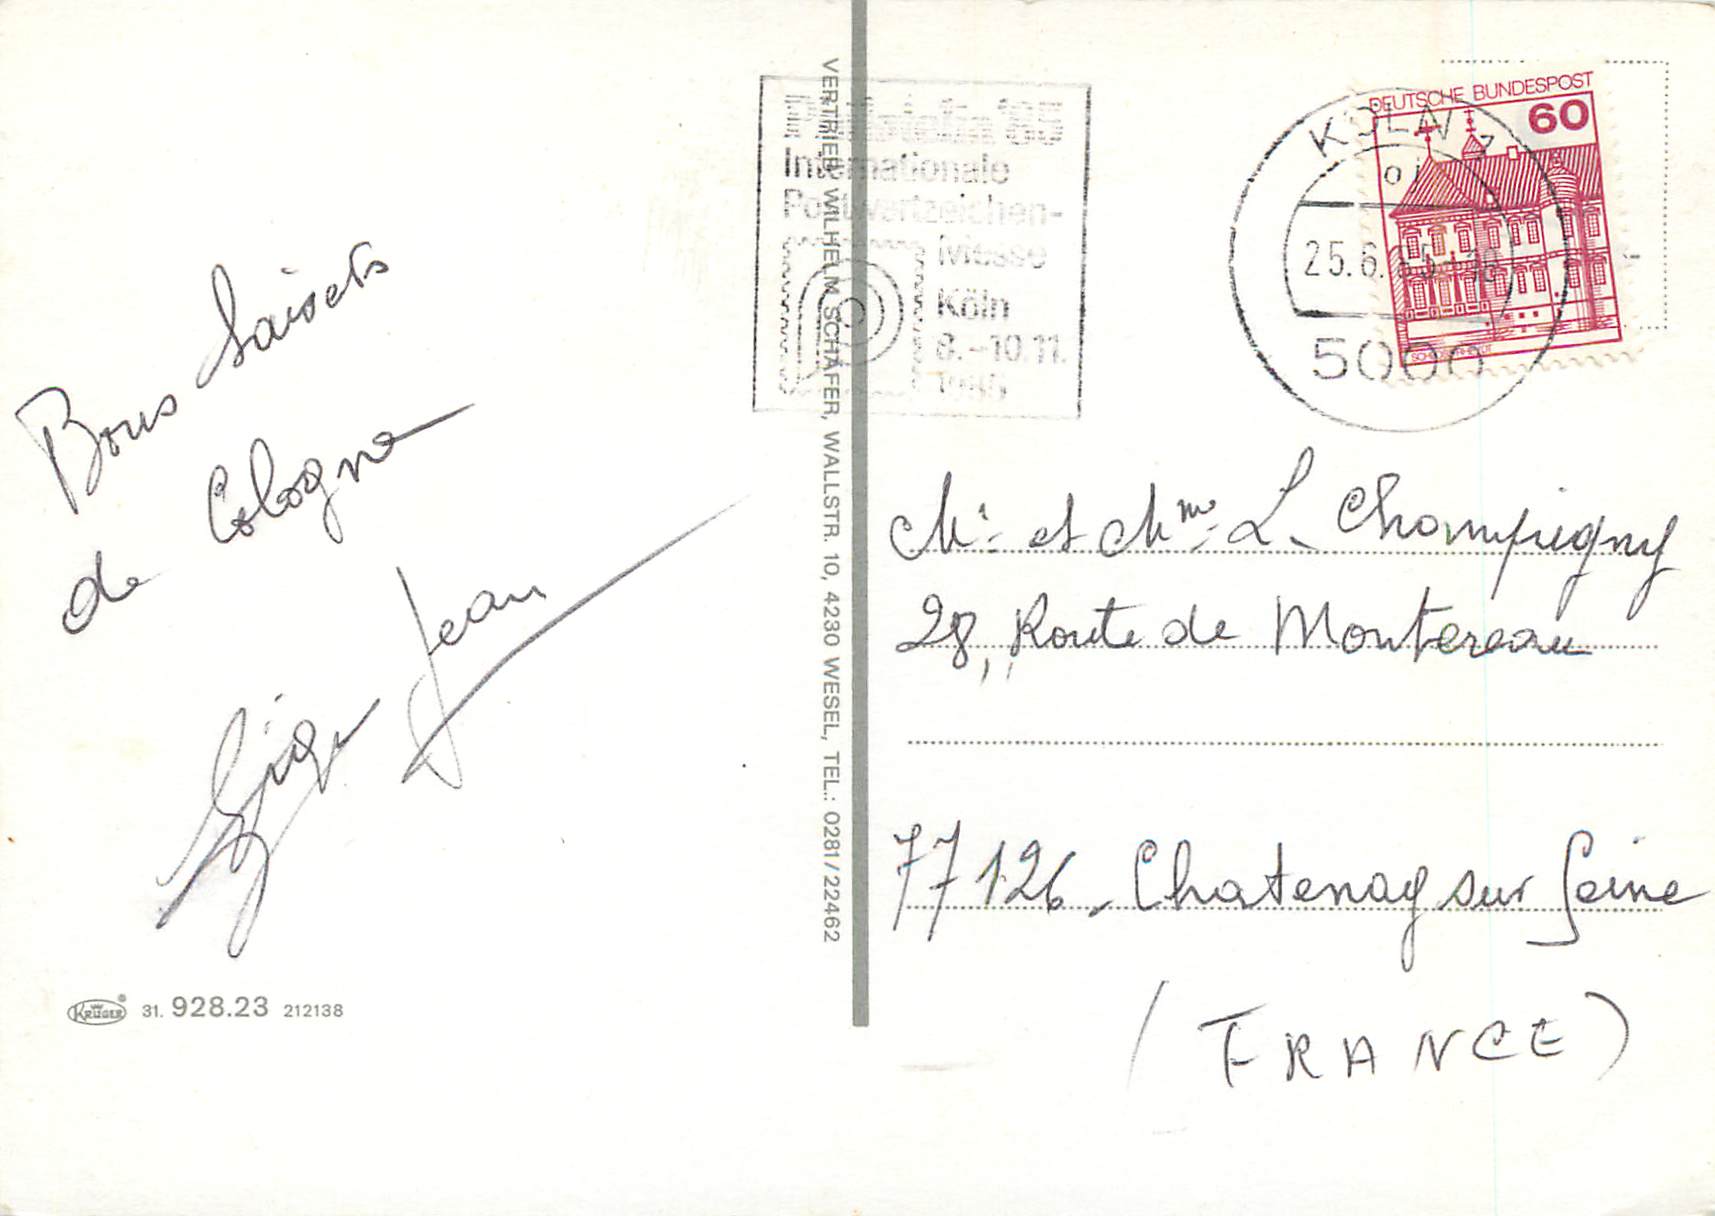 Bons baisers
de Cologne
Jean
KRÜGER® 31. 928.23 212138
VERTRIEB WILHELM SCHÄFER, WALLSTR. 10, 4230 WESEL, TEL.: 0281/22462
Philatelia '85
Internationale
Postwertzeichen-
Messe
Köln
8.-10.11.
1985
DEUTSCHE BUNDESPOST
60
SCHLOSS RHEYDT
KÖLN 1
25.6.85
5000
Mr. et Mme. L. Champigny
28, Route de Montereau
77126 - Chatenay sur Seine
(FRANCE)